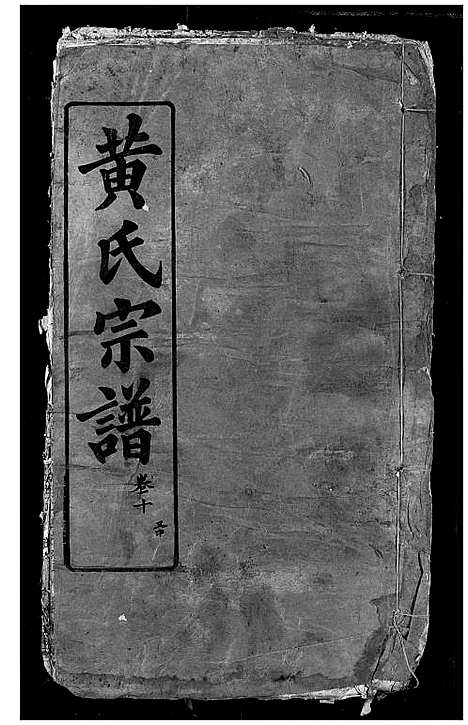 黄氏宗譜
卷十